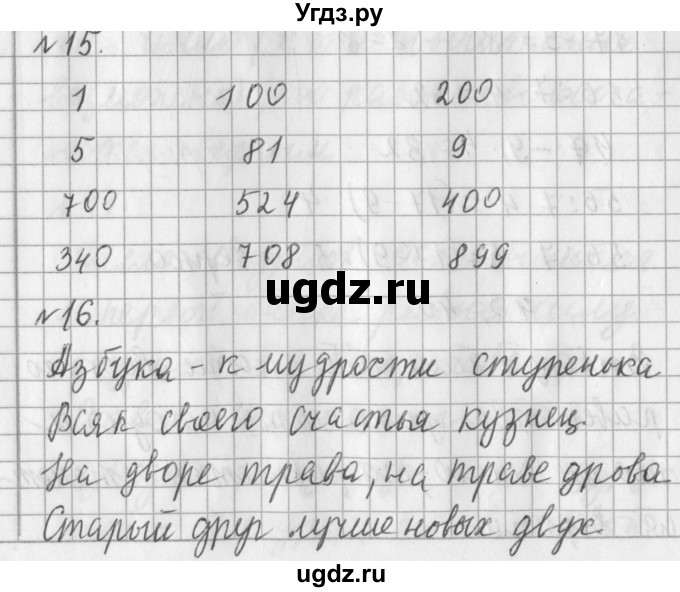 Угдз.ру
№15.
1 100 200
5 81 9
700 524 400
340 708 899
ugdz.ru
№16.
Азбука - к мудрости ступенька
Всяк своего счастья кузнец.
На дворе трава, на траве дрова
Старый друг лучше новых двух.
ugdz.ru